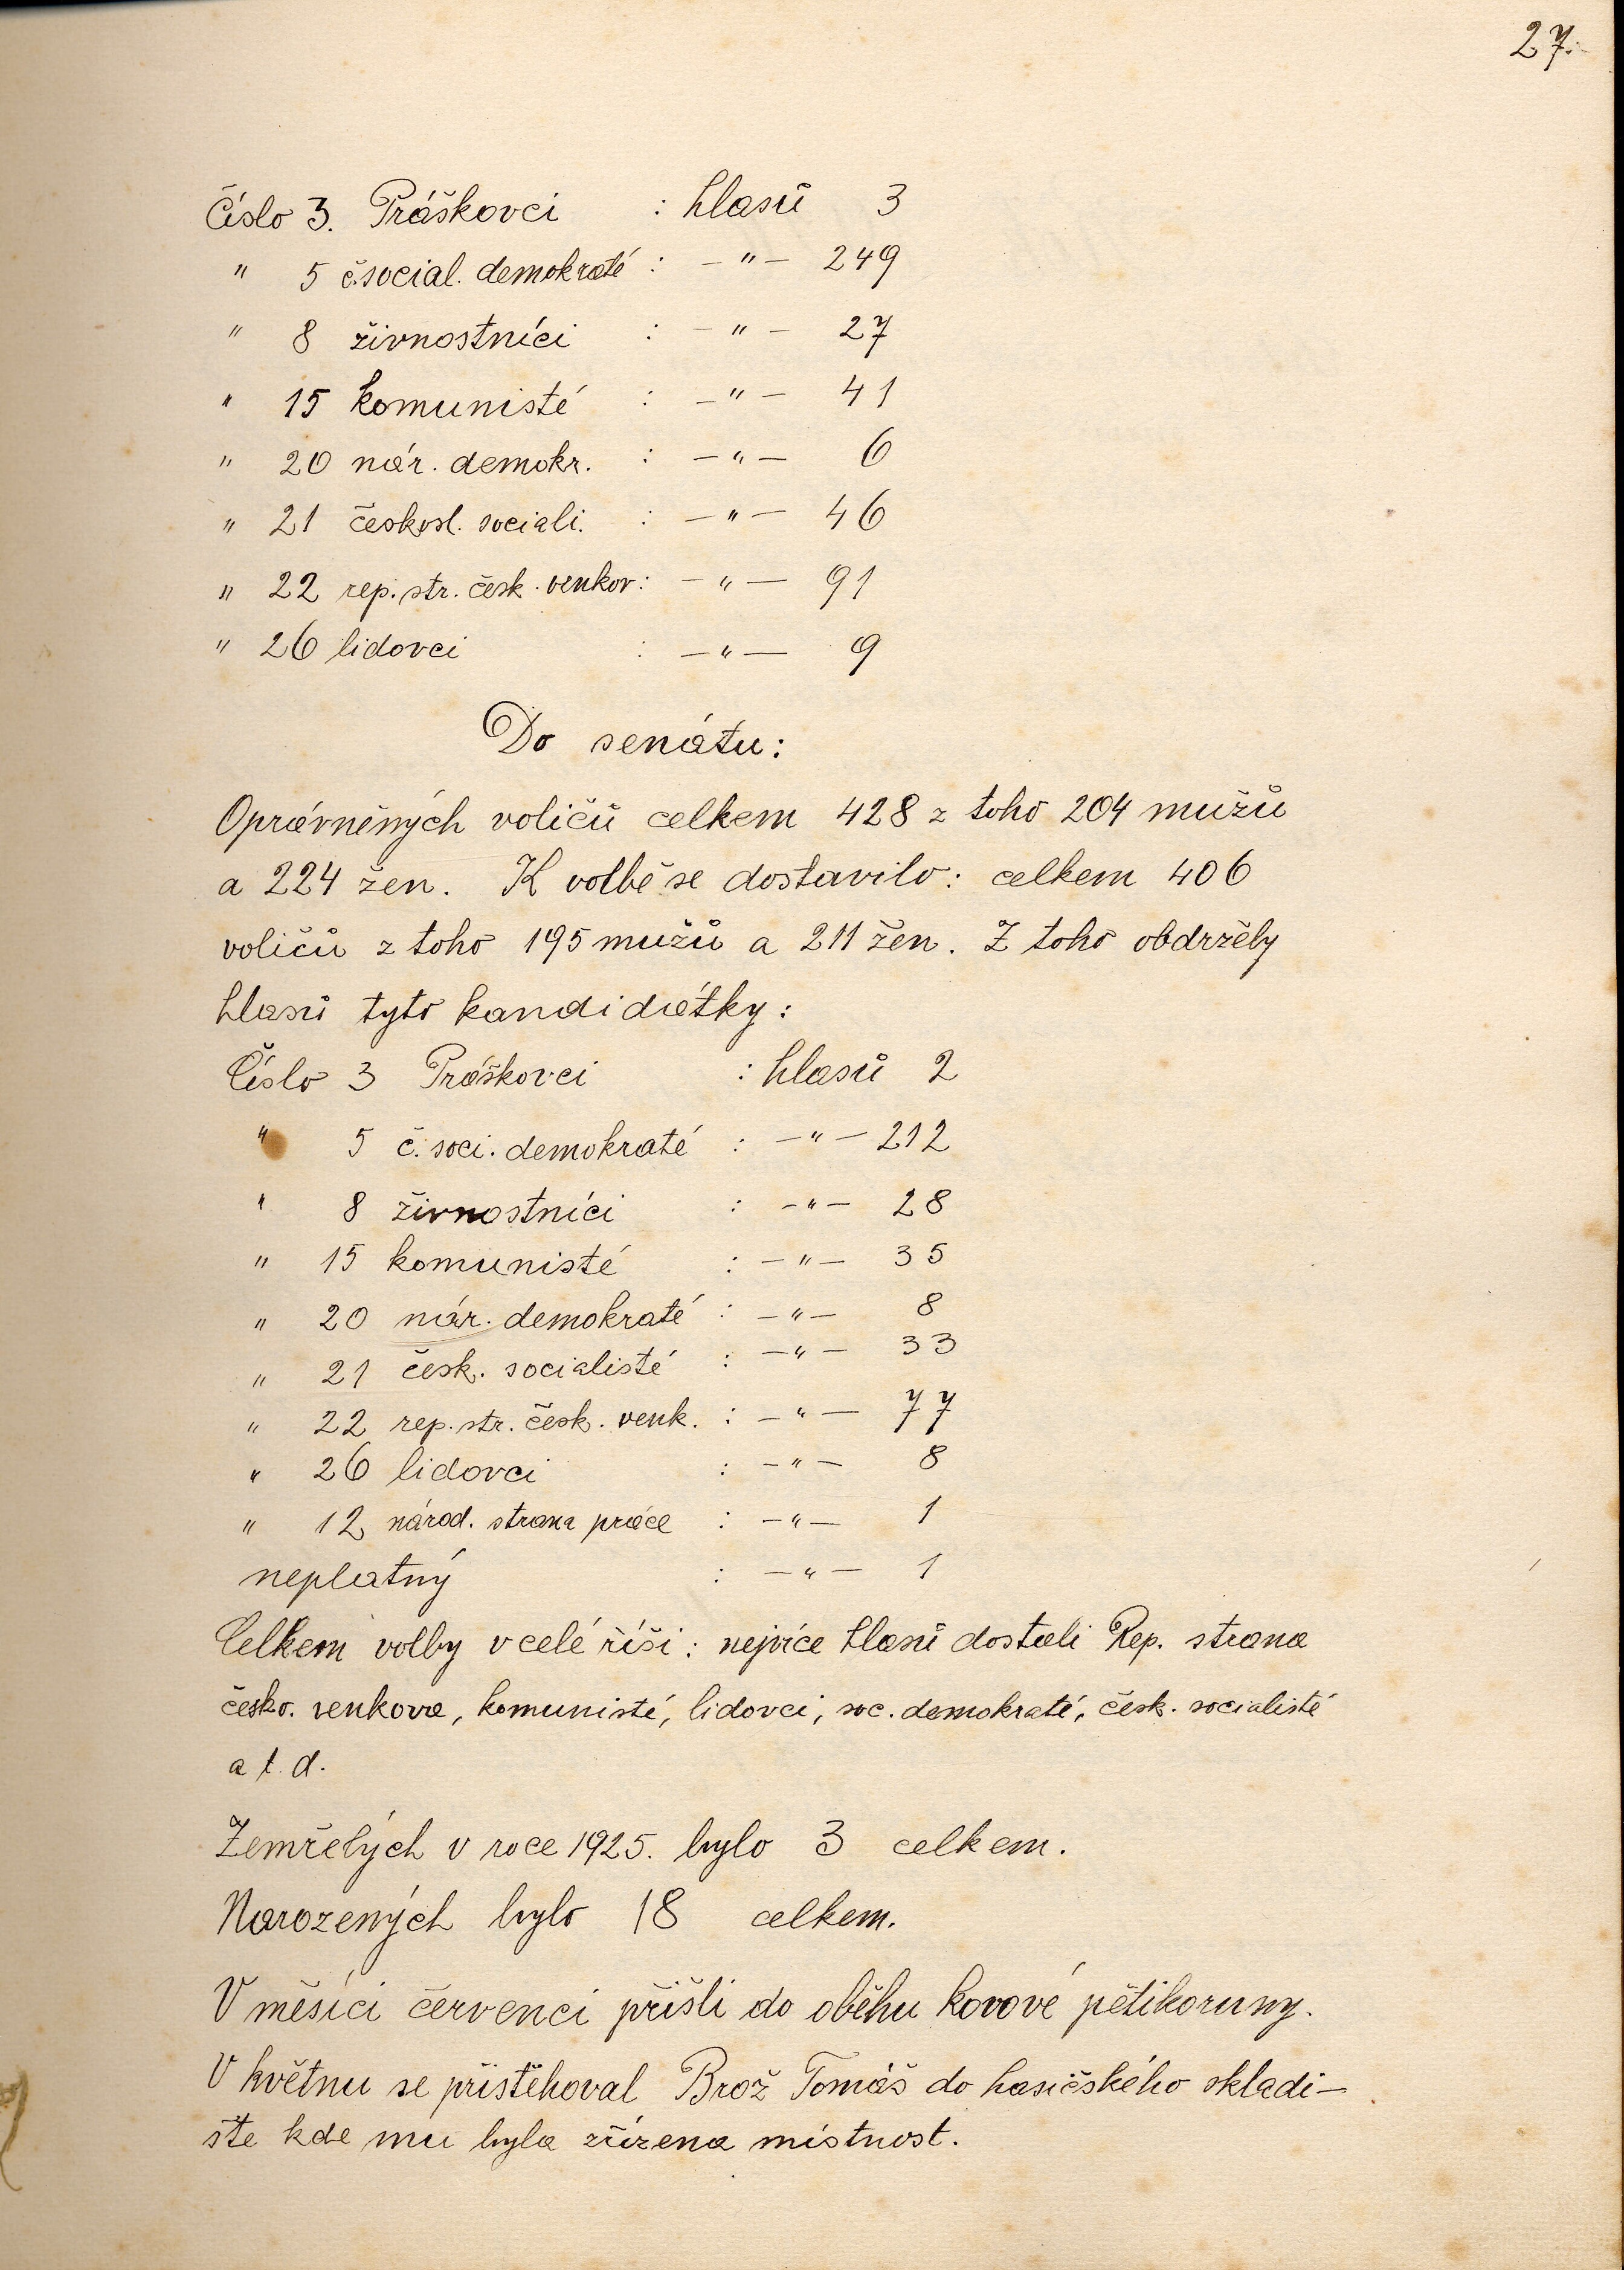 27.
Číslo 3. Práškovci : hlasů 3
" 5 č.social. demokraté : —"— 249
" 8 živnostníci : —"— 27
" 15 komunisté : —"— 41
" 20 nár. demokr. : —"— 6
" 21 českosl. sociali. : —"— 46
" 22 rep. str. česk. venkov : —"— 91
" 26 lidovci : —"— 9
Do senátu:
Oprávněných voličů celkem 428 z toho 204 mužů
a 224 žen. K volbě se dostavilo: celkem 406
voličů z toho 195 mužů a 211 žen. Z toho obdržely
hlasů tyto kandidátky:
Číslo 3 Práškovci : hlasů 2
" 5 č. soci. demokraté : —"— 212
" 8 živnostníci : —"— 28
" 15 komunisté : —"— 35
" 20 nár. demokraté : —"— 8
" 21 česk. socialisté : —"— 33
" 22 rep. str. česk. venk. : —"— 77
" 26 lidovci : —"— 8
" 12 národ. strana práce : —"— 1
neplatný : —"— 1
Celkem volby v celé říši: nejvíce hlasů dostali Rep. strana
česko. venkova, komunisté, lidovci, soc. demokraté, česk. socialisté
a t. d.
Zemřelých v roce 1925. bylo 3 celkem.
Narozených bylo 18 celkem.
V měsíci červenci přišli do oběhu kovové pětikoruny.
V květnu se přistěhoval Brož Tomáš do hasičského skladi-
ště kde mu byla zřízena místnost.